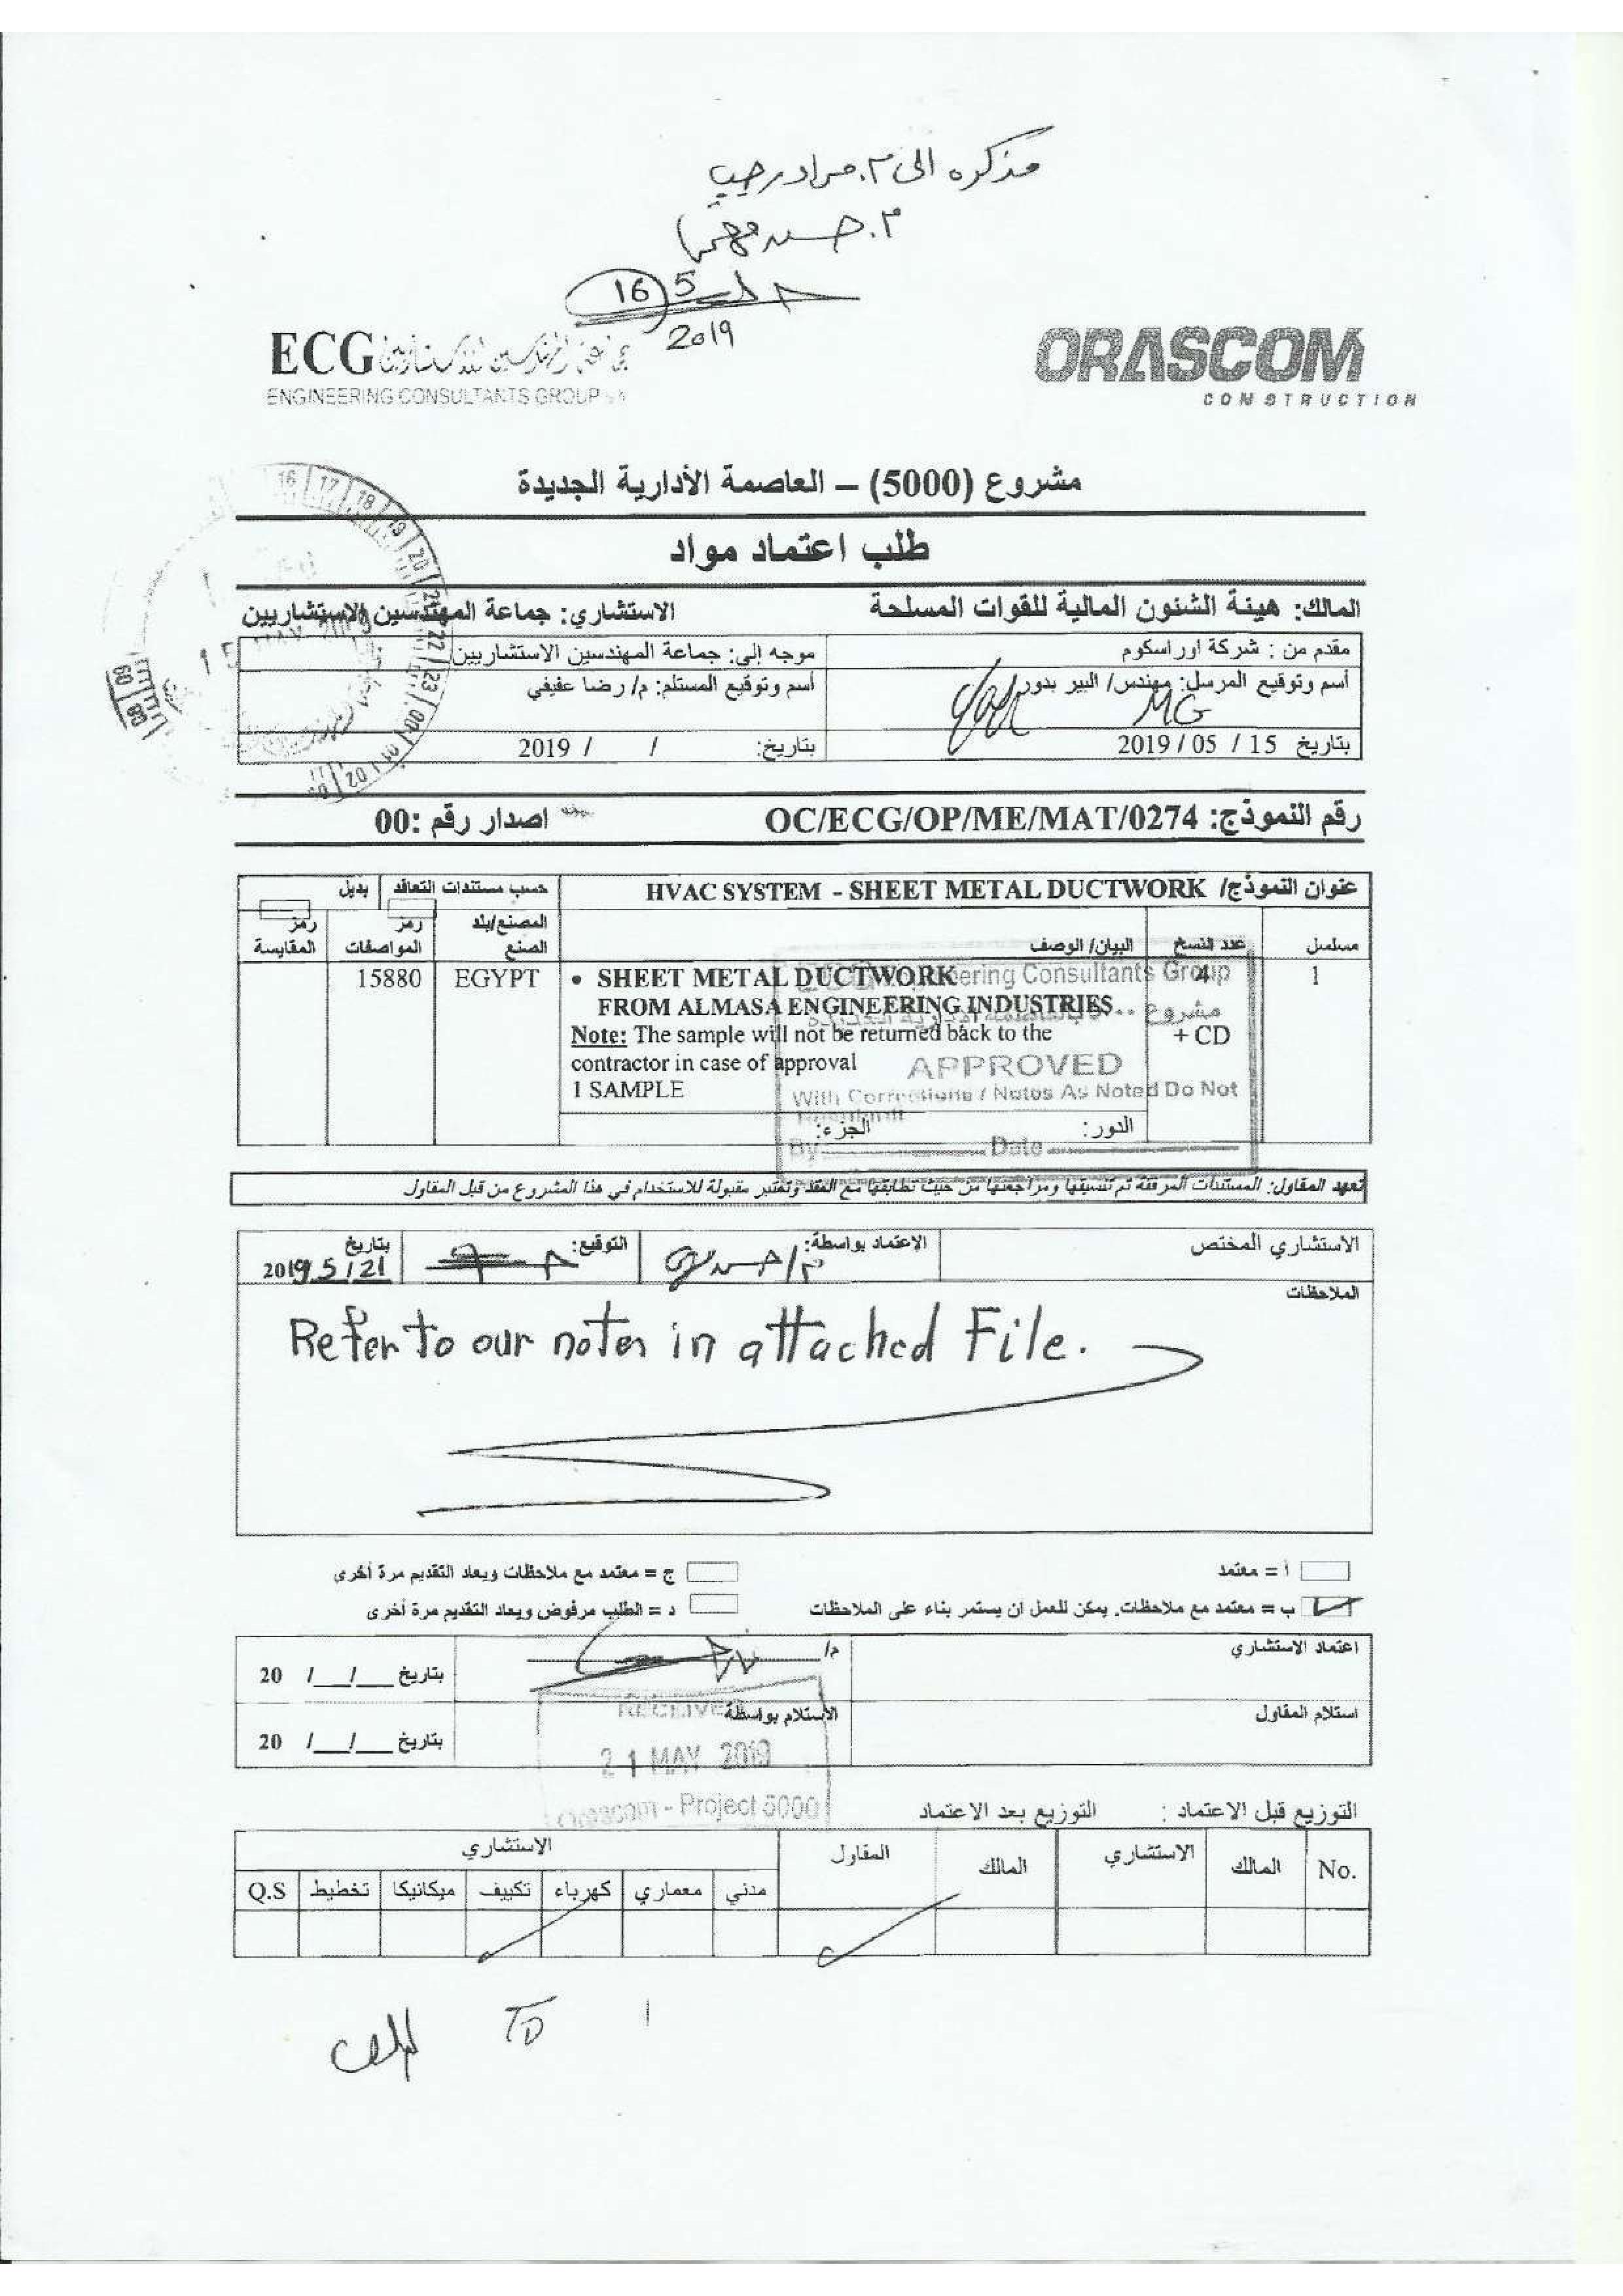 مذكره الى م. مراد رجب
م. حسن
16/5
2019
ECG
ENGINEERING CONSULTANTS GROUP
ORASCOM
CONSTRUCTION
مشروع (5000) – العاصمة الأدارية الجديدة
طلب اعتماد مواد
المالك: هيئة الشئون المالية للقوات المسلحة
الاستشاري: جماعة المهندسين الاستشاريين
مقدم من : شركة اوراسكوم
موجه إلى: جماعة المهندسين الاستشاريين
أسم وتوقيع المرسل: مهندس/ البير بدور
MG
أسم وتوقيع المستلم: م/ رضا عفيفي
بتاريخ 15 / 05 / 2019
بتاريخ: / / 2019
رقم النموذج: OC/ECG/OP/ME/MAT/0274
اصدار رقم :00
عنوان النموذج/ HVAC SYSTEM - SHEET METAL DUCTWORK
حسب مستندات التعاقد
بديل
مسلسل
عدد النسخ
البيان/ الوصف
المصنع/بلد الصنع
رمز المواصفات
رمز المقايسة
1
4
+ CD
• SHEET METAL DUCTWORK
FROM ALMASA ENGINEERING INDUSTRIES
Note: The sample will not be returned back to the
contractor in case of approval
1 SAMPLE
EGYPT
15880
الدور:
الجزء:
Engineering Consultants Group
APPROVED
With Corrections / Notes As Noted Do Not
By
Date
تعهد المقاول: المستندات المرفقة تم تنسيقها ومراجعتها من حيث تطابقها مع العقد وتعتبر مقبولة للاستخدام في هذا المشروع من قبل المقاول
الاستشاري المختص
الاعتماد بواسطة:
التوقيع:
بتاريخ
2019 5/21
الملاحظات
Refer to our notes in attached File.
أ = معتمد
ج = معتمد مع ملاحظات ويعاد التقديم مرة أخرى
ب = معتمد مع ملاحظات. يمكن للعمل ان يستمر بناء على الملاحظات
د = الطلب مرفوض ويعاد التقديم مرة أخرى
اعتماد الاستشاري
م/
بتاريخ ___/___/ 20
استلام المقاول
الأستلام بواسطة
بتاريخ ___/___/ 20
RECEIVED
21 MAY 2019
Orascom - Project 5000
التوزيع قبل الاعتماد :
التوزيع بعد الاعتماد
No.
المالك
الاستشاري
المالك
المقاول
الاستشاري
مدني
معماري
كهرباء
تكييف
ميكانيكا
تخطيط
Q.S
TO